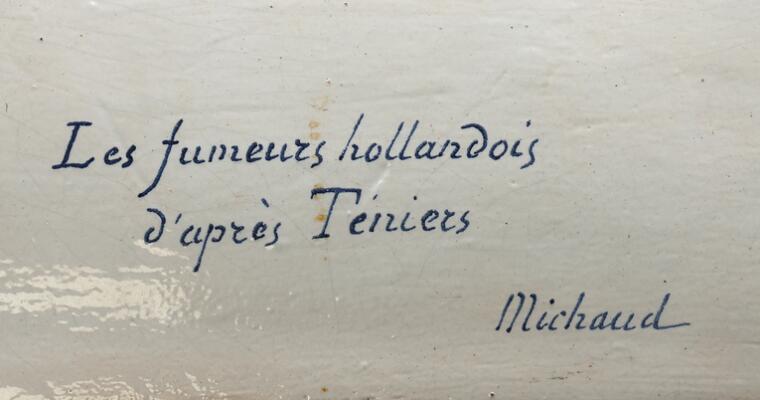 Les fumeurs hollandois
d'après Téniers
Michaud